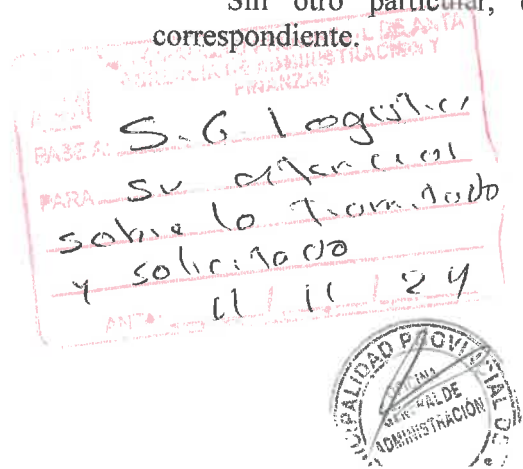 Sin otro particular,
correspondiente.
DE ANTA
DE ADMINISTRACION Y
FINANZAS
PASE A: S.G. Logistica
PARA su atencion
sobre lo Tramitado
y solicitado
ANTA 11 / 11 / 24
ADMINISTRACIÓN